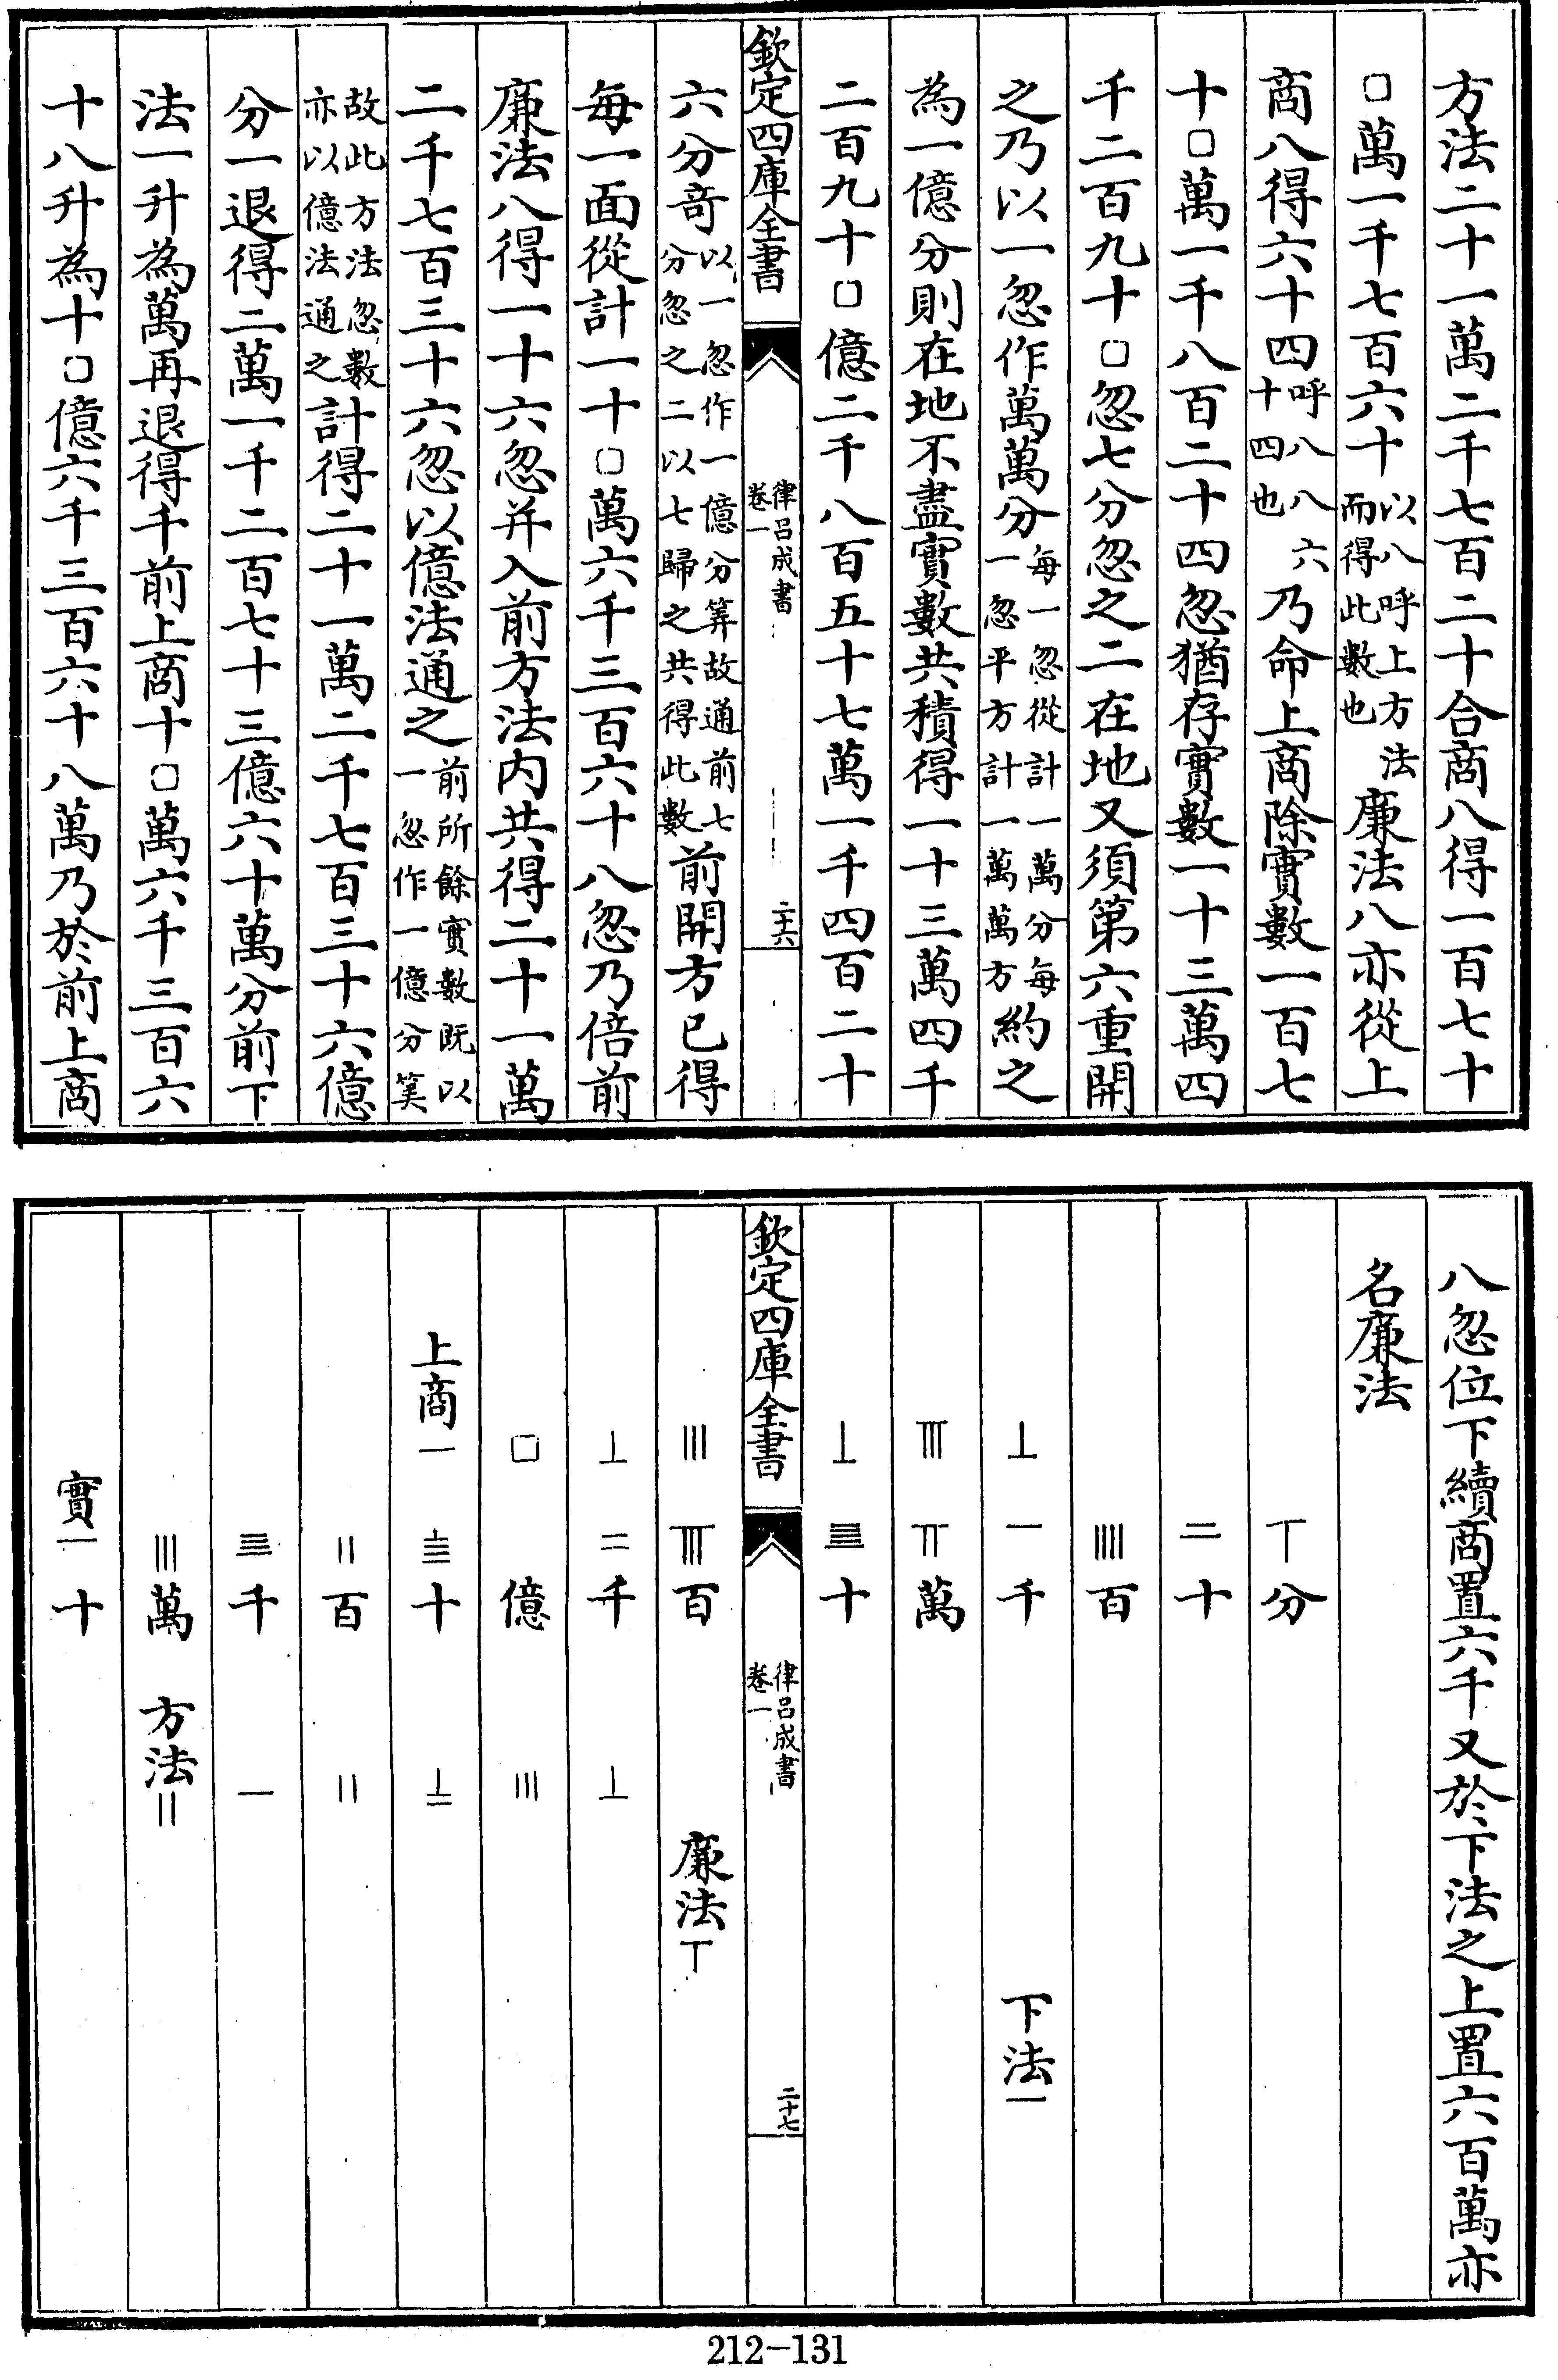 方法二十一萬二千七百二十合商八得一百七十
□萬一千七百六十以八呼上方法而得此數也廉法八亦從上
商八得六十四呼八八六十四也乃命上商除實數一百七
十□萬一千八百二十四忽猶存實數一十三萬四
千二百九十□忽七分忽之二在地又須第六重開
之乃以一忽作萬萬分每一忽從計一萬分每一忽平方計一萬萬方約之
為一億分則在地不盡實數共積得一十三萬四千
二百九十□億二千八百五十七萬一千四百二十
欽定四庫全書
律呂成書
卷一
二十六
六分竒以一忽作一億分筭故通前七分忽之二以七歸之共得此數前開方已得
每一面從計一十□萬六千三百六十八忽乃倍前
廉法八得一十六忽并入前方法内共得二十一萬
二千七百三十六忽以億法通之前所餘實數既以一忽作一億分筭
故此方法忽數亦以億法通之計得二十一萬二千七百三十六億
分一退得二萬一千二百七十三億六十萬分前下
法一升為萬再退得千前上商十□萬六千三百六
十八升為十□億六千三百六十八萬乃於前上商
八忽位下續商置六千又於下法之上置六百萬亦
名廉法
丅分
二十
||||百
⊥ 一千 下法一
萬
⊥ 十
欽定四庫全書
律呂成書
卷一
二十七
||| 百 廉法丅
⊥ 二千 ⊥
□ 億 |||
上商一 十
||百 ||
千 一
|||萬 方法||
實一十
212-131